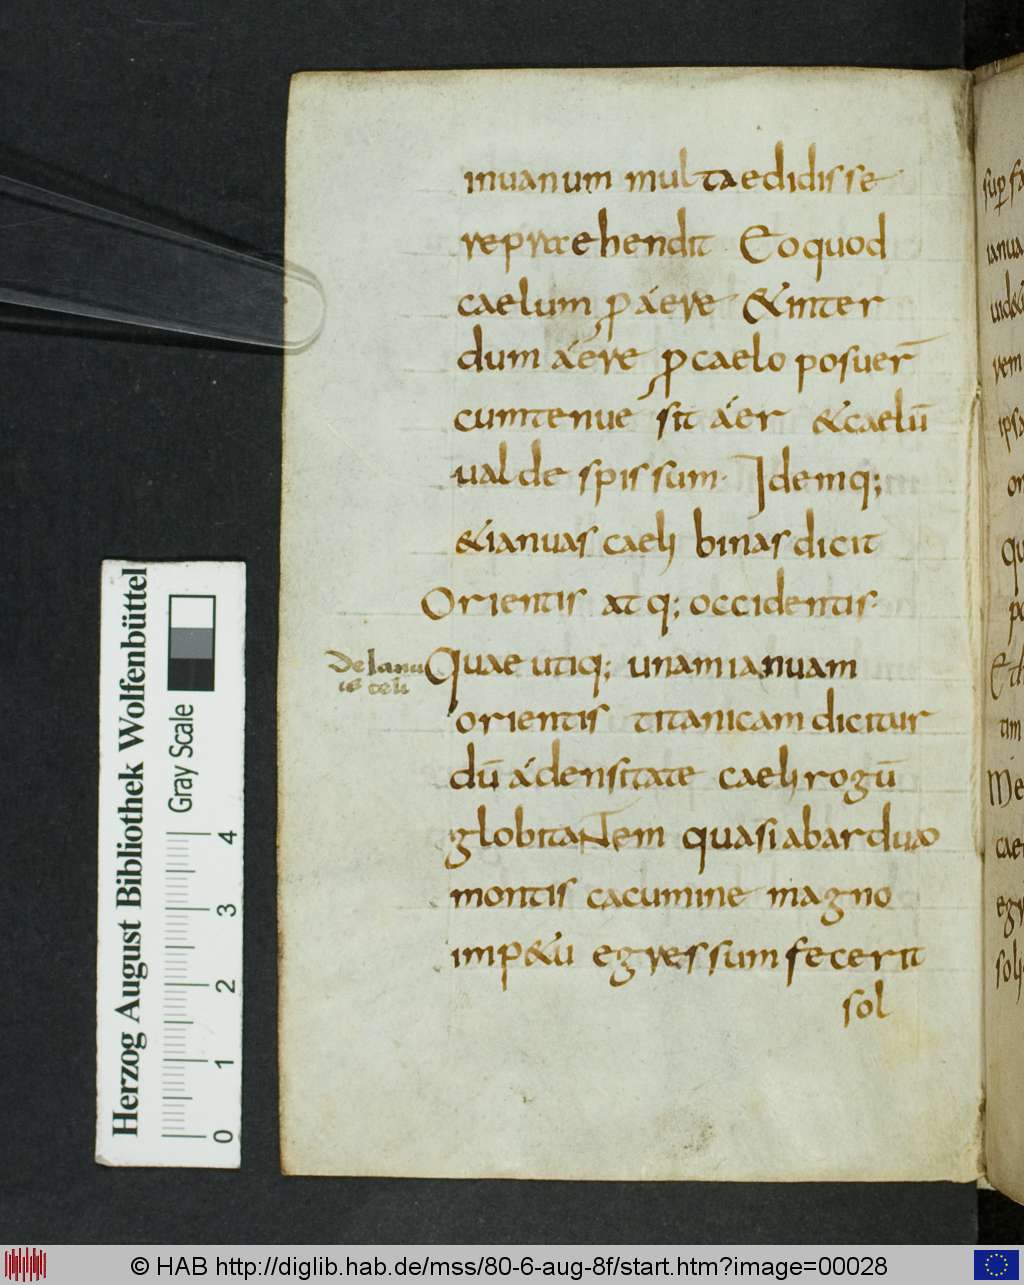 inuanum multa edidisse
reprehendit Eo quod
caelum p aere & inter
dum aere p caelo posuer̄
cum tenue sit aer & caelū
ualde spissum· Idemq;
& ianuas caeli binas dicit
Orientis atq; occidentis·
De Ianu
is celi
Quae utiq; unam ianuam
orientis titanicam dicitur
dū a densitate caeli rogū
globitantem quasi ab arduo
montis cacumine magno
imp&u egressum fecerit
sol
sup fa
ianua
uid&
rem
ipsa
or
qu
pe
Eth
tim
Me
cae
egy
Herzog August Bibliothek Wolfenbüttel
Gray Scale
0 1 2 3 4
© HAB http://diglib.hab.de/mss/80-6-aug-8f/start.htm?image=00028